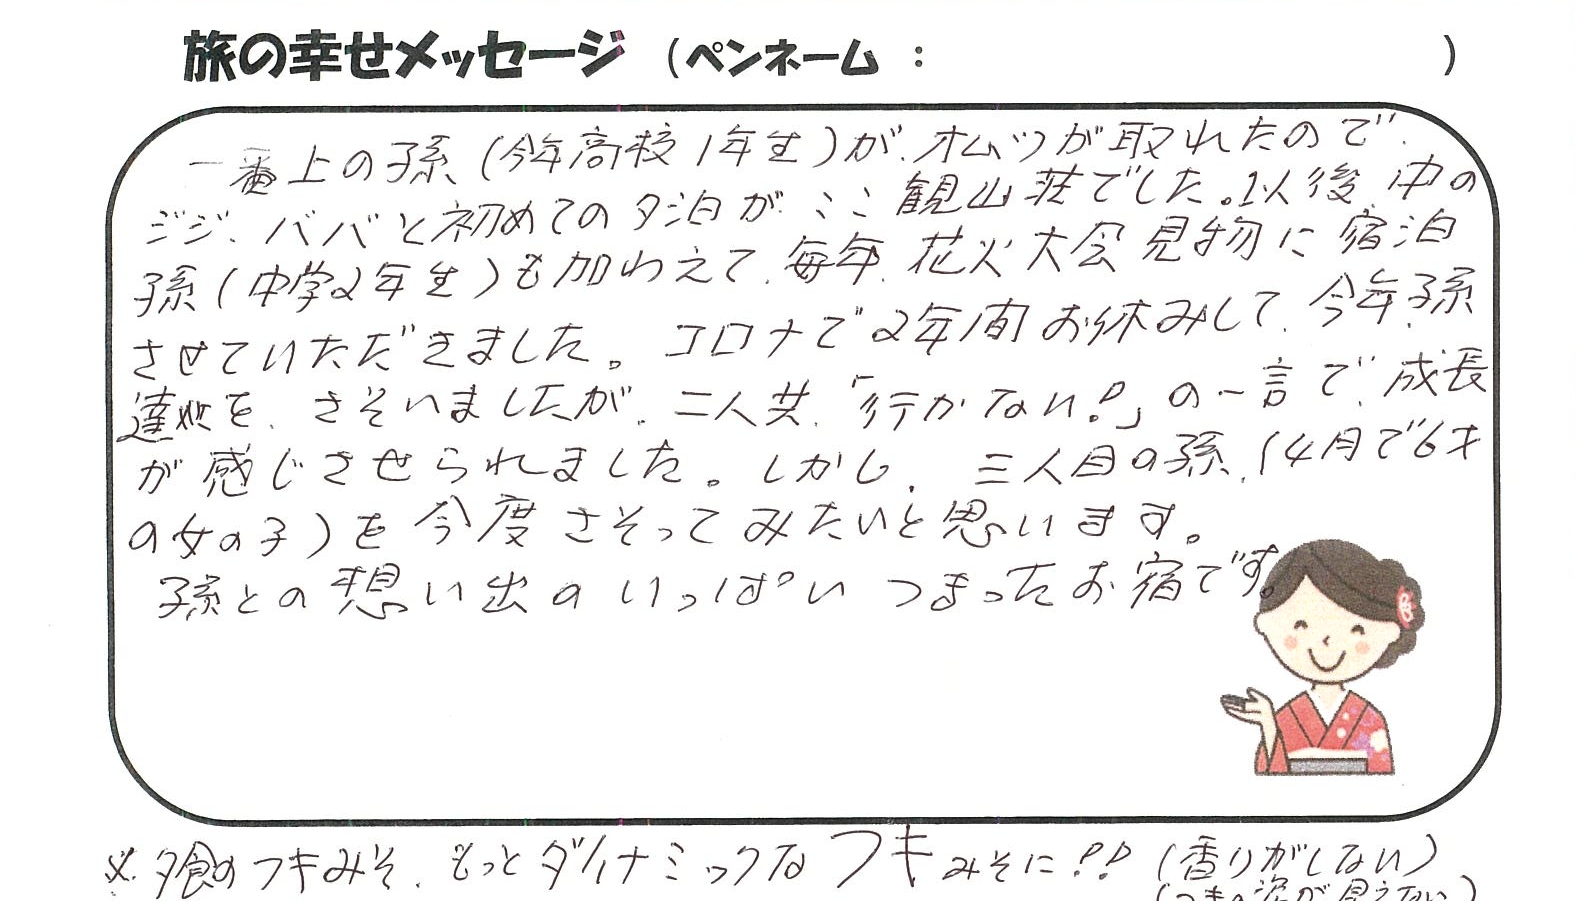 旅の幸せメッセージ （ペンネーム ： ）
一番上の孫(今年高校1年生)が、オムツが取れたので、
ジジ、ババと初めての夕泊が、ここ観山荘でした。以後、中の
孫(中学2年生)も加わえて、毎年、花火大会見物に宿泊
させていただきました。コロナで2年間お休みして、今年、孫
達を、さそいましたが、二人共、「行かない!」の一言で、成長
が感じさせられました。しかし、三人目の孫、(4月で6才
の女の子)を今度さそってみたいと思います。
孫との想い出のいっぱいつまったお宿です。
※夕食のフキみそ、もっとダイナミックなフキみそに!!(香りがしない)
(フキの姿が見えない)